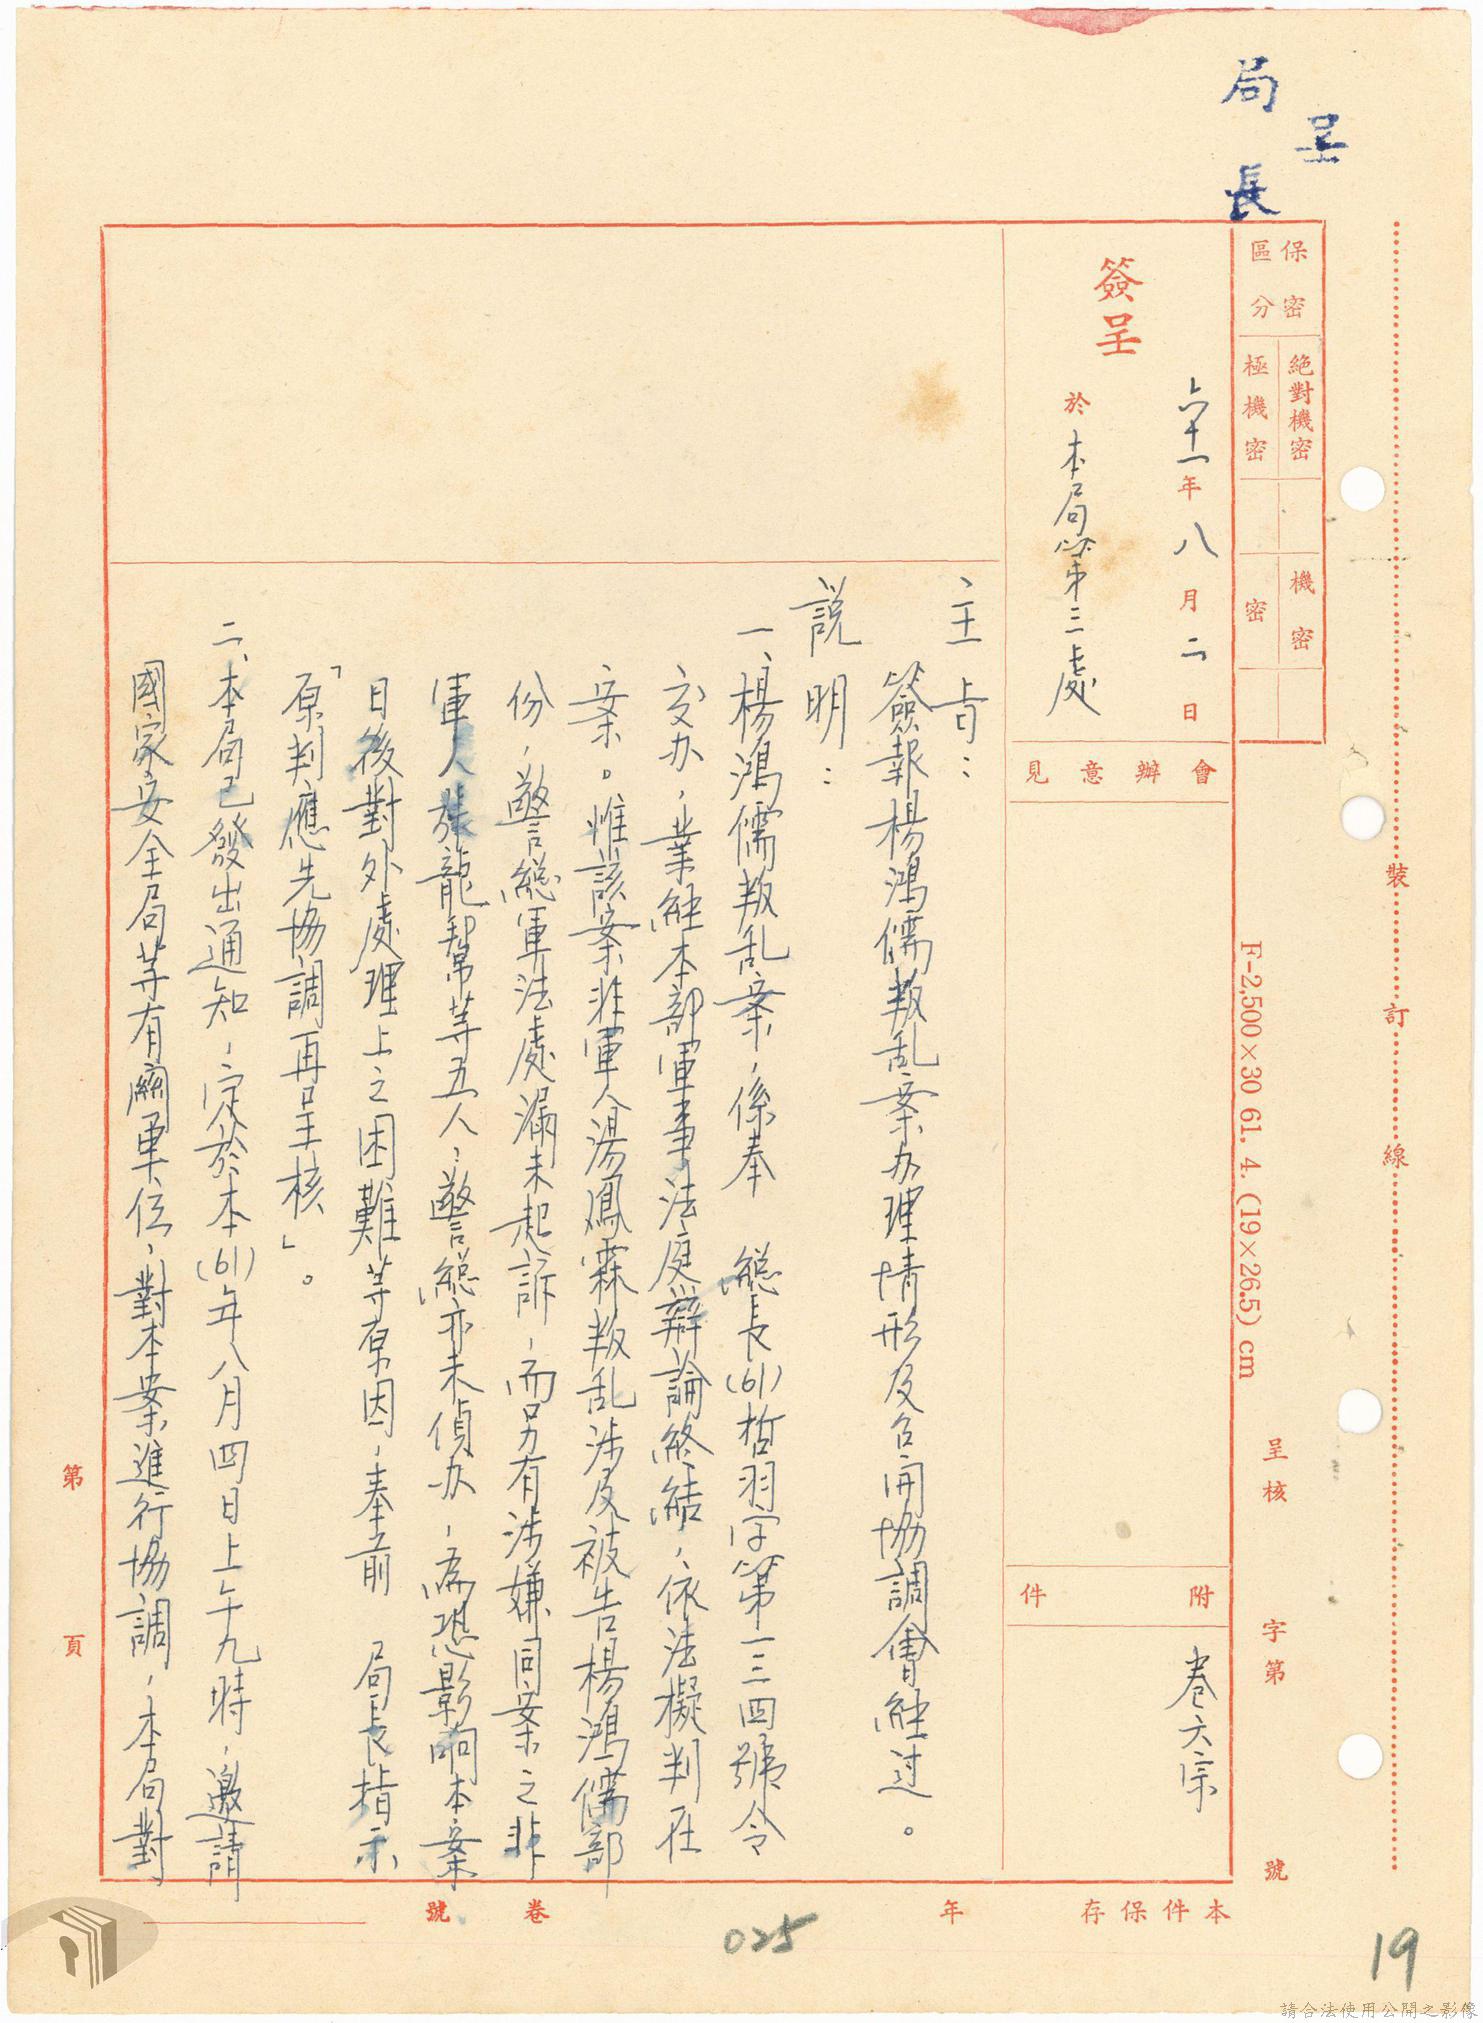 呈
局長
保密區分
絕對機密
極機密
機密
密
簽呈
六十一年八月二日
於本局第三處
會辦意見
附件
卷六宗
主旨：
簽報楊鴻儒叛乱案办理情形及召開協調會經过。
說明：
一、楊鴻儒叛乱案，係奉　總長(61)哲羽字第一三四號令
交办，業經本部軍事法庭辯論終結，依法擬判在
案。惟該案非軍人湯鳳霖叛乱涉及被告楊鴻儒部
份，警總軍法處漏未起訴，而另有涉嫌同案之非
軍人龍幫等五人，警總亦未偵办，為恐影响本案
日後對外處理上之困難等原因，奉前　局長指示
「原判應先協調再呈核」。
二、本局已發出通知，定於本(61)年八月四日上午九時，邀請
國家安全局等有關單位，對本案進行協調，本局對
裝訂線
F-2,500×30 61. 4. (19×26.5) cm
呈核　字第　號
第　頁
本件保存　年　卷　號
025
19
請合法使用公開之影像